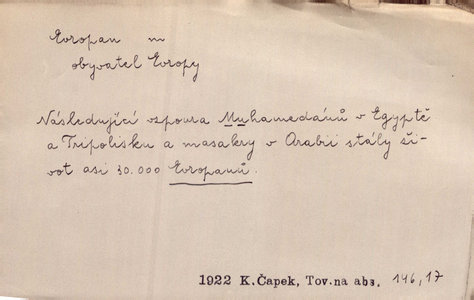 Evropan m
obyvatel Evropy
Následující vzpoura Muhamedánů v Egyptě
a Tripolisku a masakry v Arabii stály ži-
vot asi 30.000 Evropanů.
1922 K.Čapek, Tov.na abs. 146,17